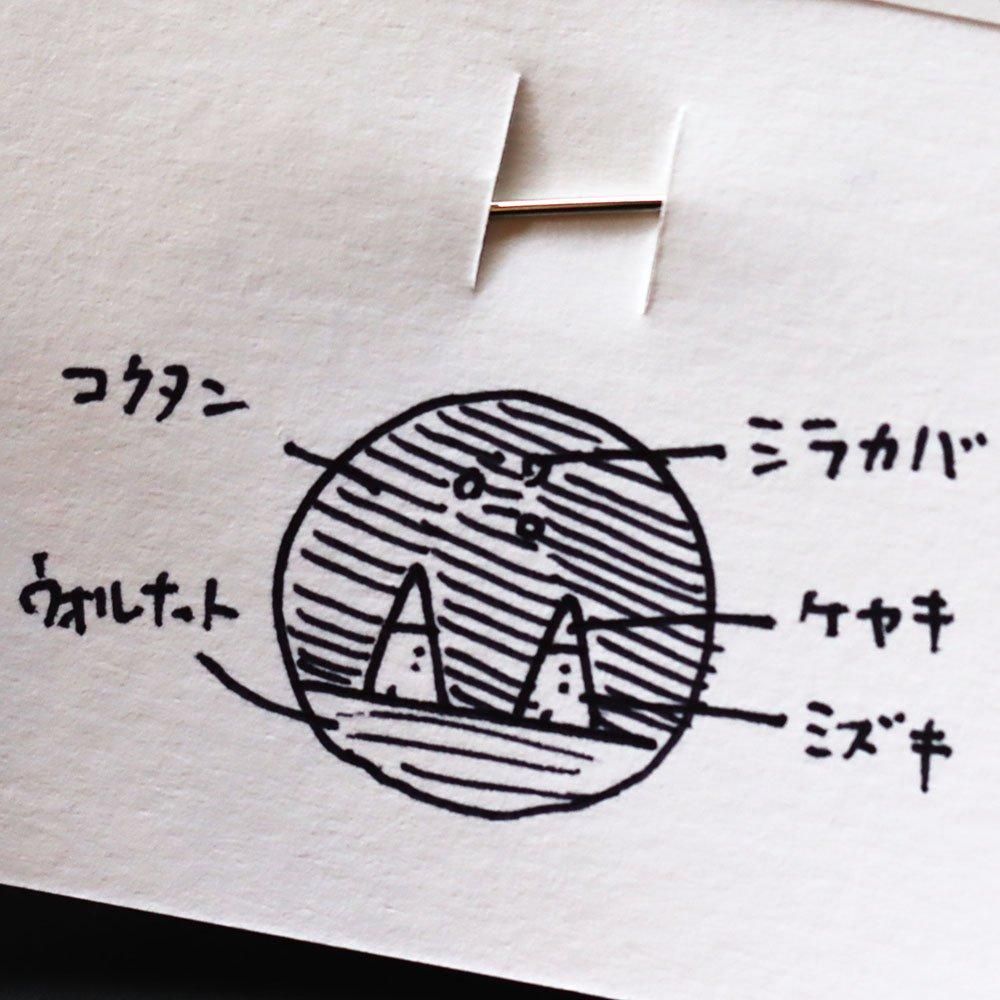 コクタン
シラカバ
ウォルナット
ケヤキ
ミズキ